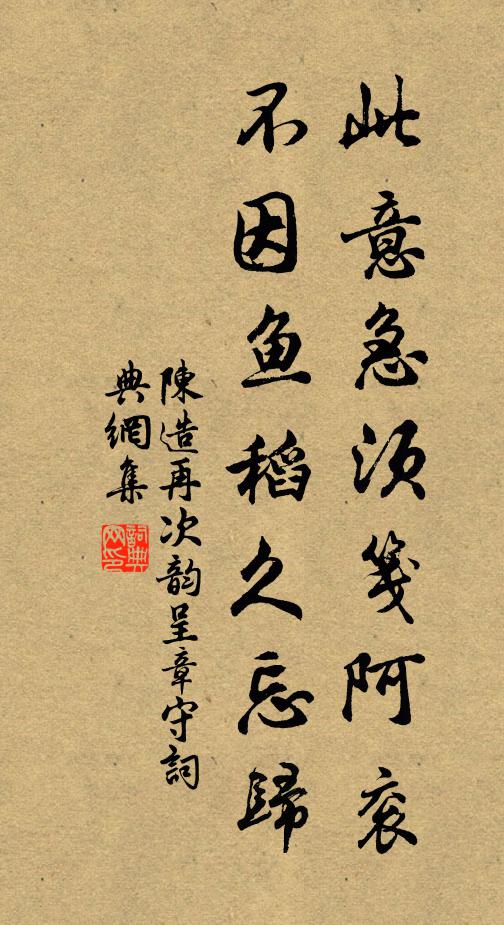 此意急须笺阿衮
不因鱼稻久忘歸
陳造再次韵呈章守詞
典網集
詞典
网印